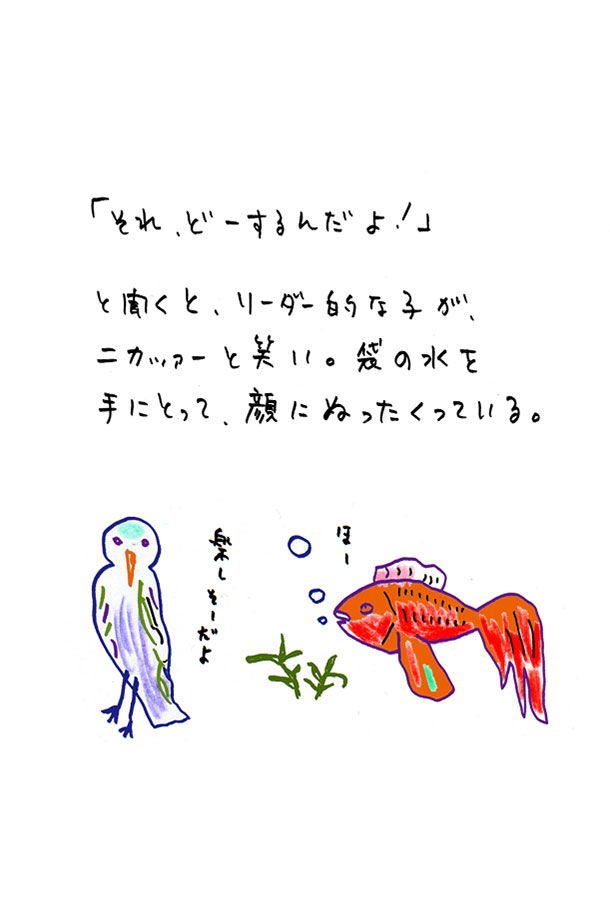 「それ、どーするんだよ!」
と聞くと、リーダー的な子が、
ニカッァーと笑い。袋の水を
手にとって、顔にぬったくっている。
楽しそーだよ
ほー